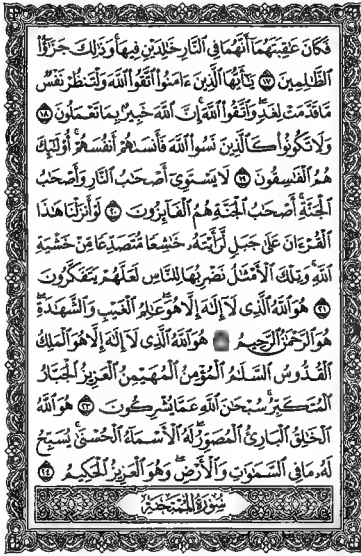 فَكَانَ عَٰقِبَتَهُمَآ أَنَّهُمَا فِي ٱلنَّارِ خَٰلِدَيْنِ فِيهَا ۚ وَذَٰلِكَ جَزَٰٓؤُا۟
ٱلظَّٰلِمِينَ ١٧ يَٰٓأَيُّهَا ٱلَّذِينَ ءَامَنُوا۟ ٱتَّقُوا۟ ٱللَّهَ وَلْتَنظُرْ نَفْسٌ
مَّا قَدَّمَتْ لِغَدٍ ۖ وَٱتَّقُوا۟ ٱللَّهَ ۚ إِنَّ ٱللَّهَ خَبِيرٌۢ بِمَا تَعْمَلُونَ ١٨
وَلَا تَكُونُوا۟ كَٱلَّذِينَ نَسُوا۟ ٱللَّهَ فَأَنسَىٰهُمْ أَنفُسَهُمْ ۚ أُو۟لَٰٓئِكَ
هُمُ ٱلْفَٰسِقُونَ ١٩ لَا يَسْتَوِىٓ أَصْحَٰبُ ٱلنَّارِ وَأَصْحَٰبُ
ٱلْجَنَّةِ ۚ أَصْحَٰبُ ٱلْجَنَّةِ هُمُ ٱلْفَآئِزُونَ ٢٠ لَوْ أَنزَلْنَا هَٰذَا
ٱلْقُرْءَانَ عَلَىٰ جَبَلٍ لَّرَأَيْتَهُۥ خَٰشِعًا مُّتَصَدِّعًا مِّنْ خَشْيَةِ
ٱللَّهِ ۚ وَتِلْكَ ٱلْأَمْثَٰلُ نَضْرِبُهَا لِلنَّاسِ لَعَلَّهُمْ يَتَفَكَّرُونَ
٢١ هُوَ ٱللَّهُ ٱلَّذِى لَآ إِلَٰهَ إِلَّا هُوَ ۖ عَٰلِمُ ٱلْغَيْبِ وَٱلشَّهَٰدَةِ ۖ
هُوَ ٱلرَّحْمَٰنُ ٱلرَّحِيمُ هُوَ ٱللَّهُ ٱلَّذِى لَآ إِلَٰهَ إِلَّا هُوَ ٱلْمَلِكُ
ٱلْقُدُّوسُ ٱلسَّلَٰمُ ٱلْمُؤْمِنُ ٱلْمُهَيْمِنُ ٱلْعَزِيزُ ٱلْجَبَّارُ
ٱلْمُتَكَبِّرُ ۚ سُبْحَٰنَ ٱللَّهِ عَمَّا يُشْرِكُونَ ٢٣ هُوَ ٱللَّهُ
ٱلْخَٰلِقُ ٱلْبَارِئُ ٱلْمُصَوِّرُ ۖ لَهُ ٱلْأَسْمَآءُ ٱلْحُسْنَىٰ ۚ يُسَبِّحُ
لَهُۥ مَا فِى ٱلسَّمَٰوَٰتِ وَٱلْأَرْضِ ۖ وَهُوَ ٱلْعَزِيزُ ٱلْحَكِيمُ ٢٤
سُورَةُ الْمُمْتَحِنَةِ